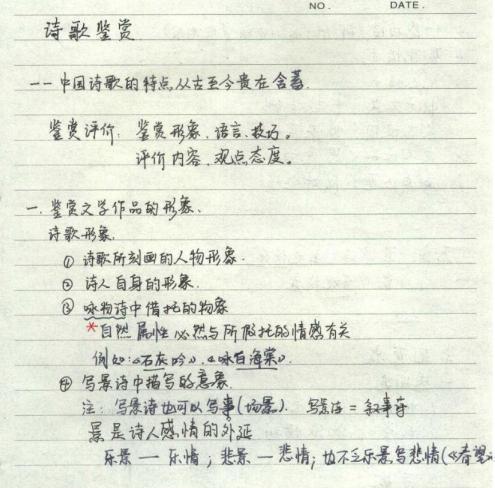 NO.    DATE.
诗歌鉴赏
——中国诗歌的特点,从古至今贵在含蓄.
鉴赏评价: 鉴赏形象、语言、技巧。
评价内容、观点态度。
一. 鉴赏文学作品的形象.
诗歌形象.
① 诗歌所刻画的人物形象.
② 诗人自身的形象.
③ 咏物诗中借托的物象
*自然属性必然与所假托的情感有关
例如:《石灰吟》.《咏白海棠》.
④ 写景诗中描写的意象
注: 写景诗也可以写事(场景). 写景诗 = 叙事诗
景是诗人感情的外延
乐景 — 乐情; 悲景 — 悲情; 也不乏乐景写悲情(《春望》